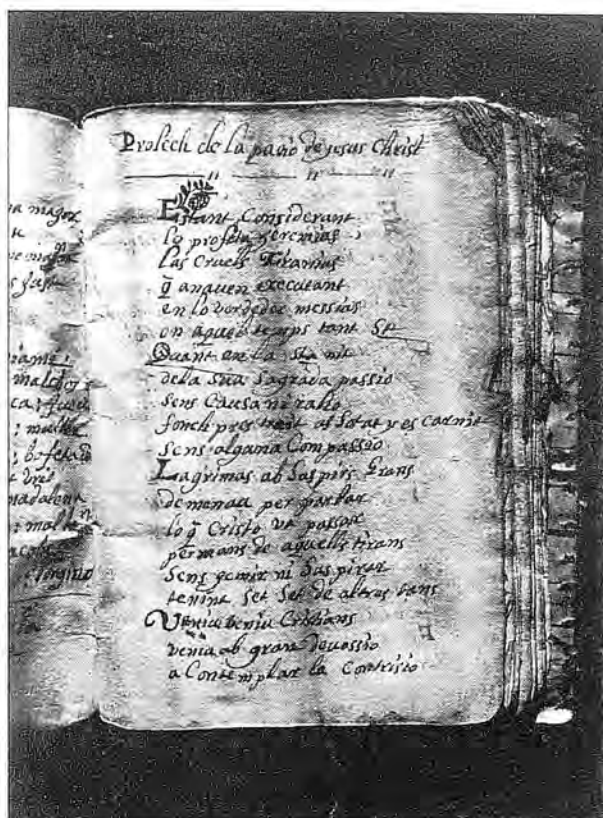 Prolech de la pasio de jesus Christ
Estant Considerant
lo profeta Jeremias
las Cruels tiranias
q̄ anauen executant
en lo verdeder messias
en aquel temps tant St
Quant en la sta nit
dela sua Sagrada passio
sens Causa ni rahó
fonch pres treit asotat y escarnit
sens alguna Compassio
Lagrimas ab Saspirs Grans
demenau per parlar
lo q̄ Cristo va passar
per mans de aquells tirans
sens gemir ni Saspirar
tenint set set de altres tans
Veniu veniu Cristians
veniu ab gran deuossio
a Contemplar la Contrisio
va major
major
malchos
malchos
bofeta
madalena